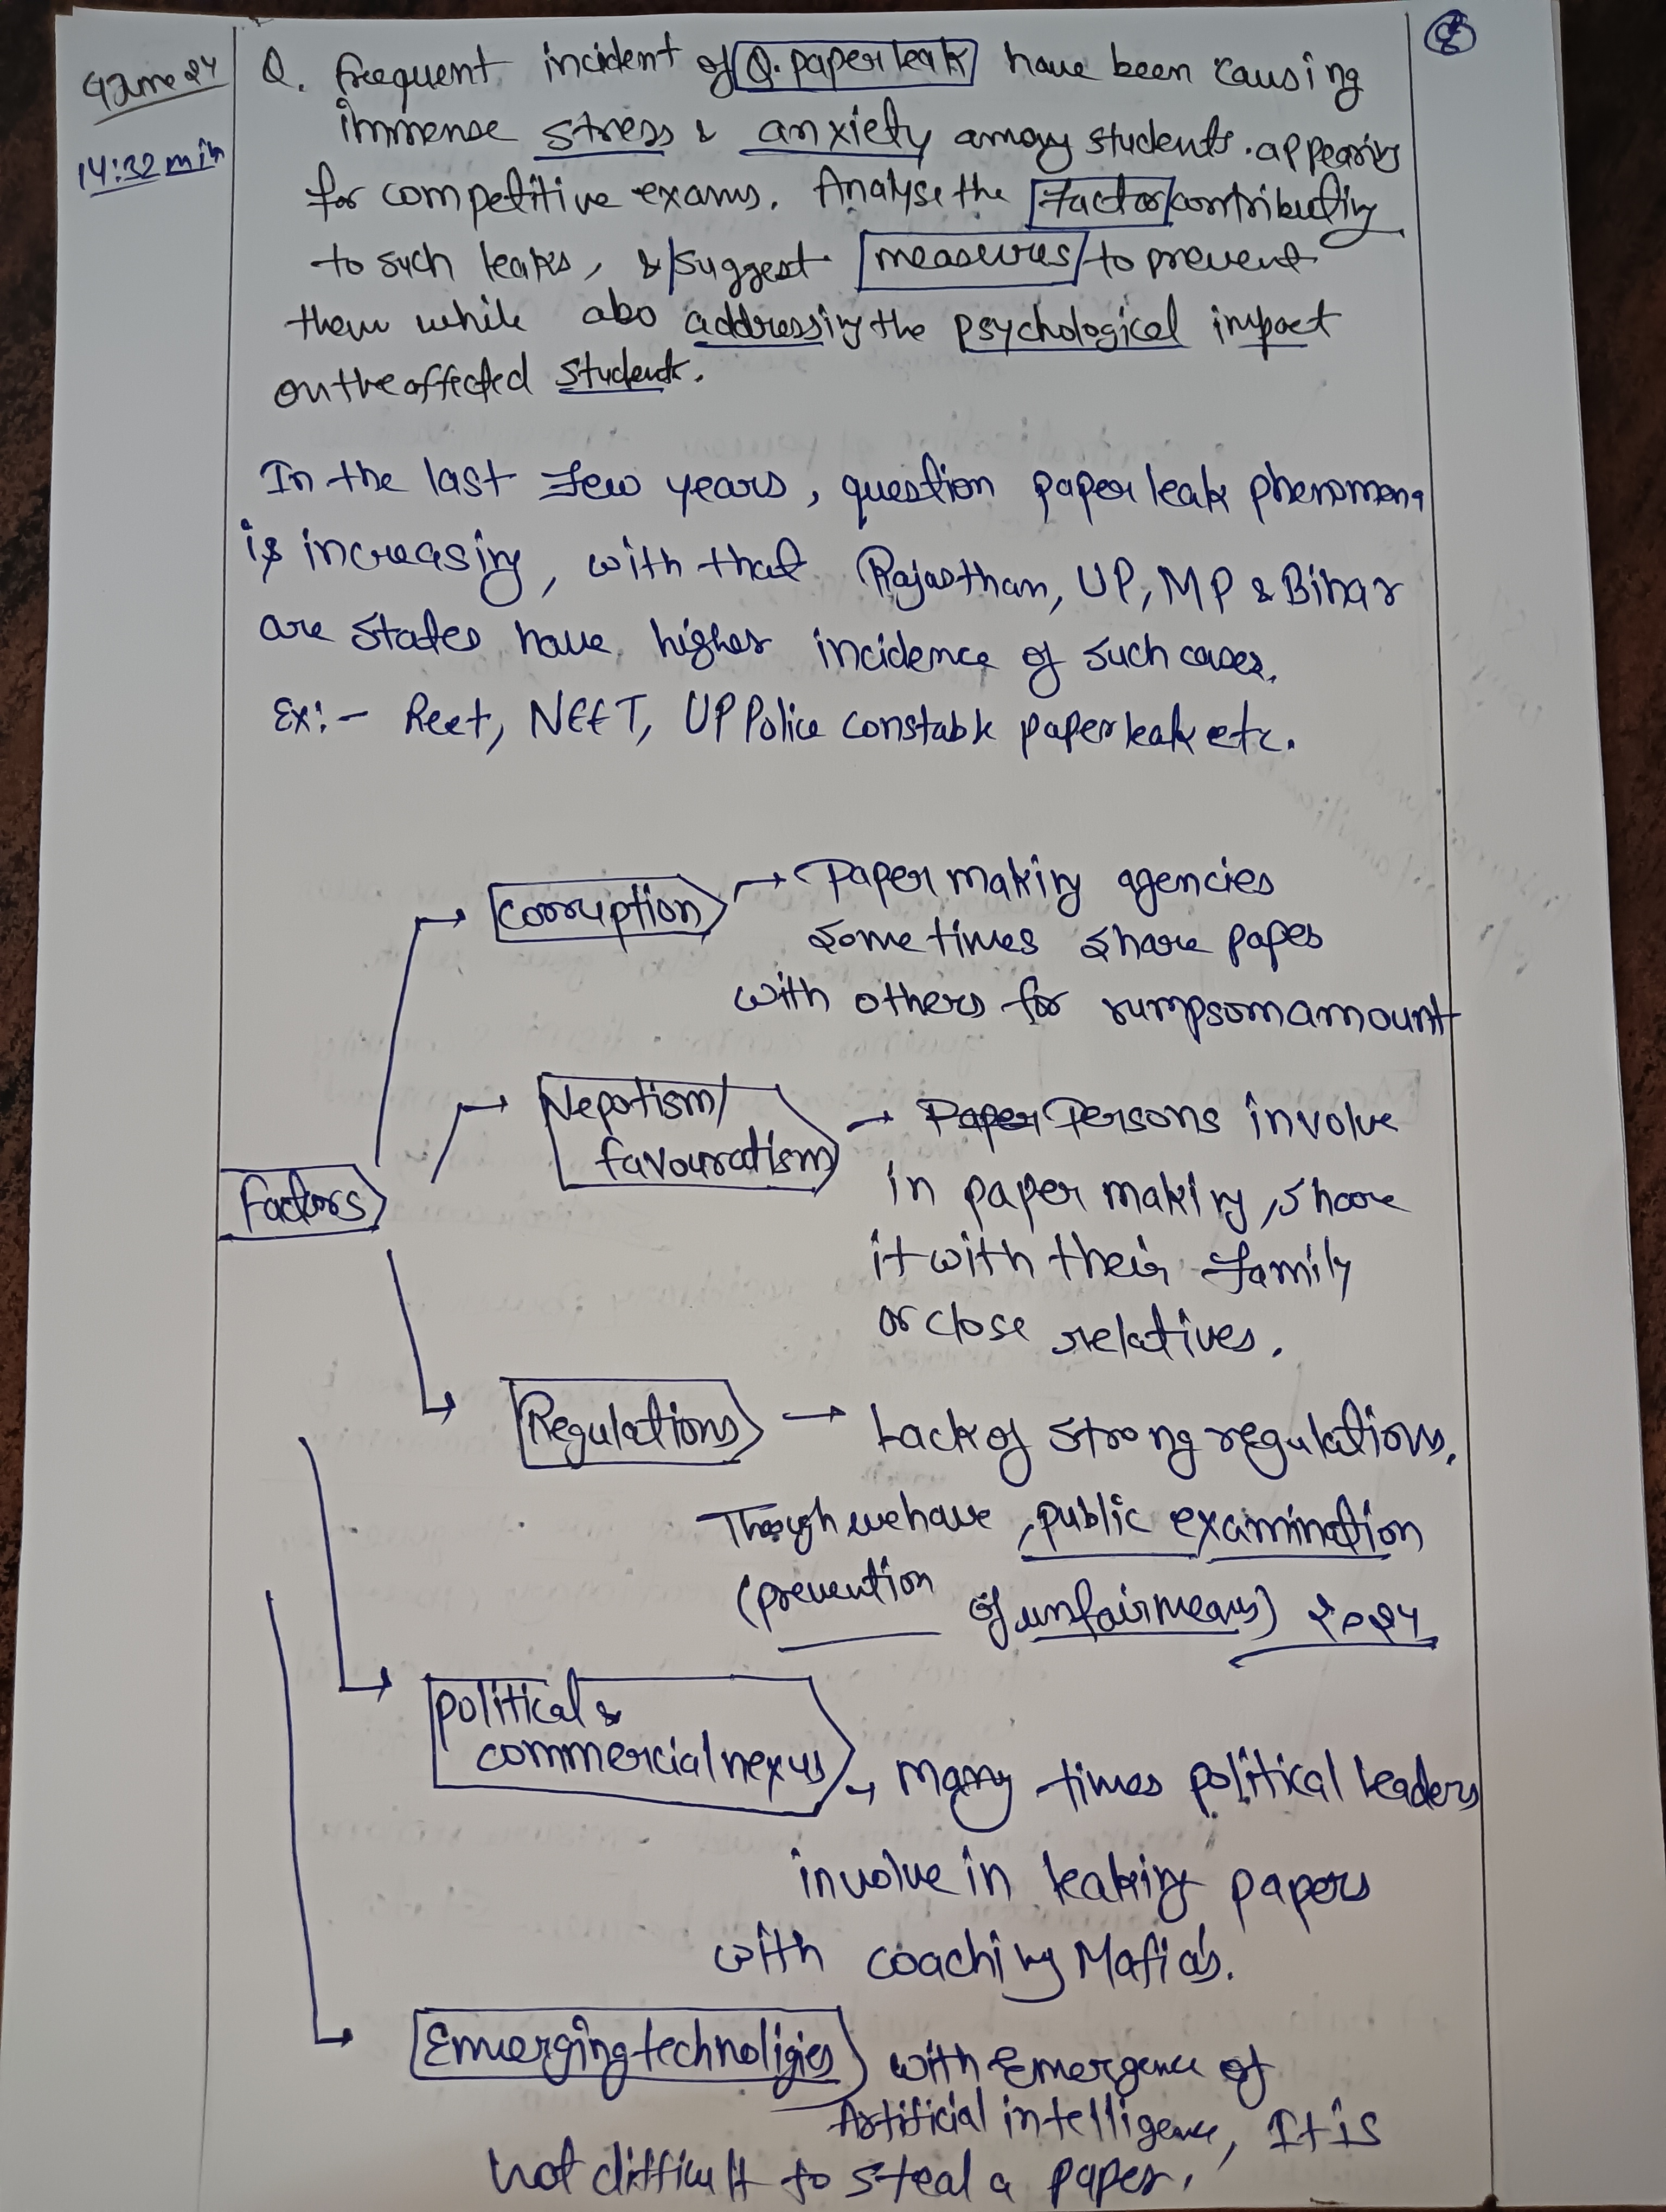 8
14:32 min
Q. frequent incident of Q. paper leak have been causing
immense stress & anxiety among students. appearing
for competitive exams. Analyse the factor contributing
to such leaks, & suggest measures to prevent
them while also addressing the psychological impact
on the affected students.
In the last few years, question paper leak phenomena
is increasing, with that Rajasthan, UP, MP & Bihar
are states have higher incidence of such cases.
Ex:- Reet, NEET, UP Police constable paper leak etc.
Corruption → Paper making agencies
some times share paper
with others for rumpsom amount
Factors
Nepotism/
favouratism → Paper Persons involve
in paper making, share
it with their family
or close relatives.
Regulations → Lack of strong regulations.
Though we have public examination
(prevention of unfair means) 2024
political &
commercial nexus → Many times political leaders
involve in leaking papers
with coaching Mafia's.
Emerging technoligies with Emergence of
Artificial intelligence, It is
not difficult to steal a paper.